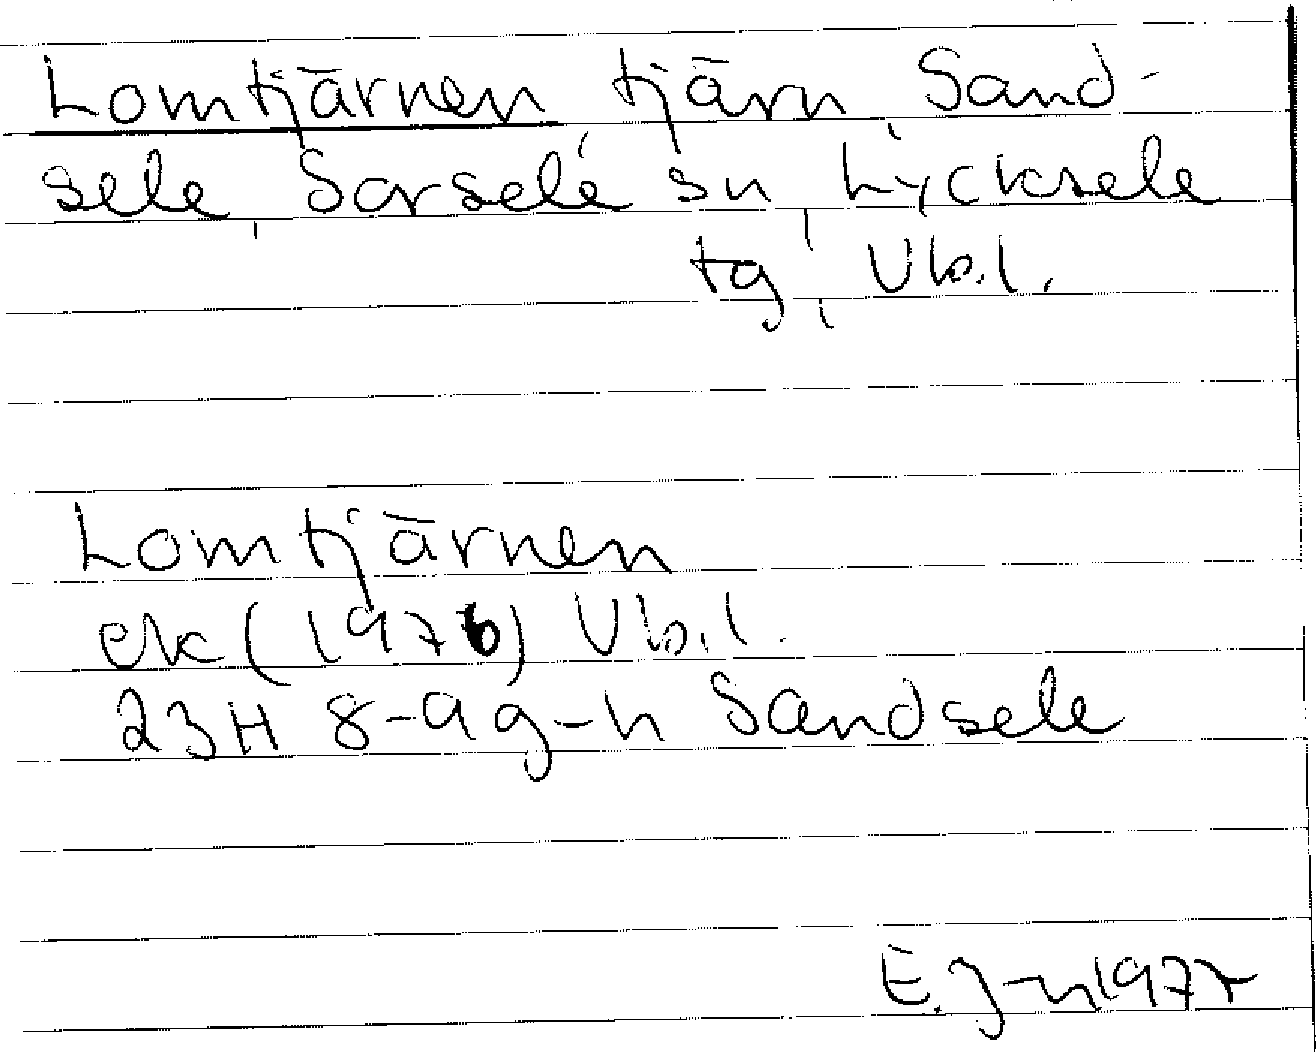 Lomtjärnen tjärn Sand-
sele, Sorsele sn, Lycksele
tg, Vb.l.
Lomtjärnen
ek (1976) Vb.l.
23H 8-9g-h Sandsele
E. J-n 1977